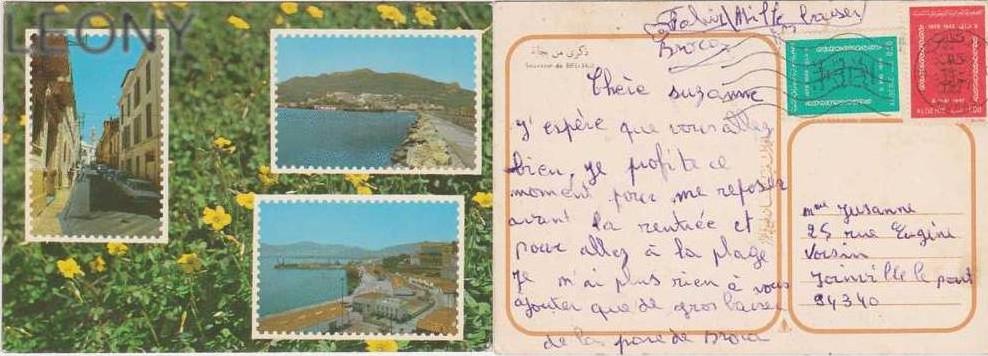 LEONY
mille baiser
ذكرى من بجاية
Souvenir de BEJAIA
Chère suzanne
J'espère que vous allez
bien, je profite ce
moment pour me reposer
avant la rentrée et
pour allez à la plage
je m'ai plus rien à vous
ajouter que de gros baiser
de la pare de Broca
Mme Suzanne
25 rue Eugène
Voisin
Joinville le pont
94340